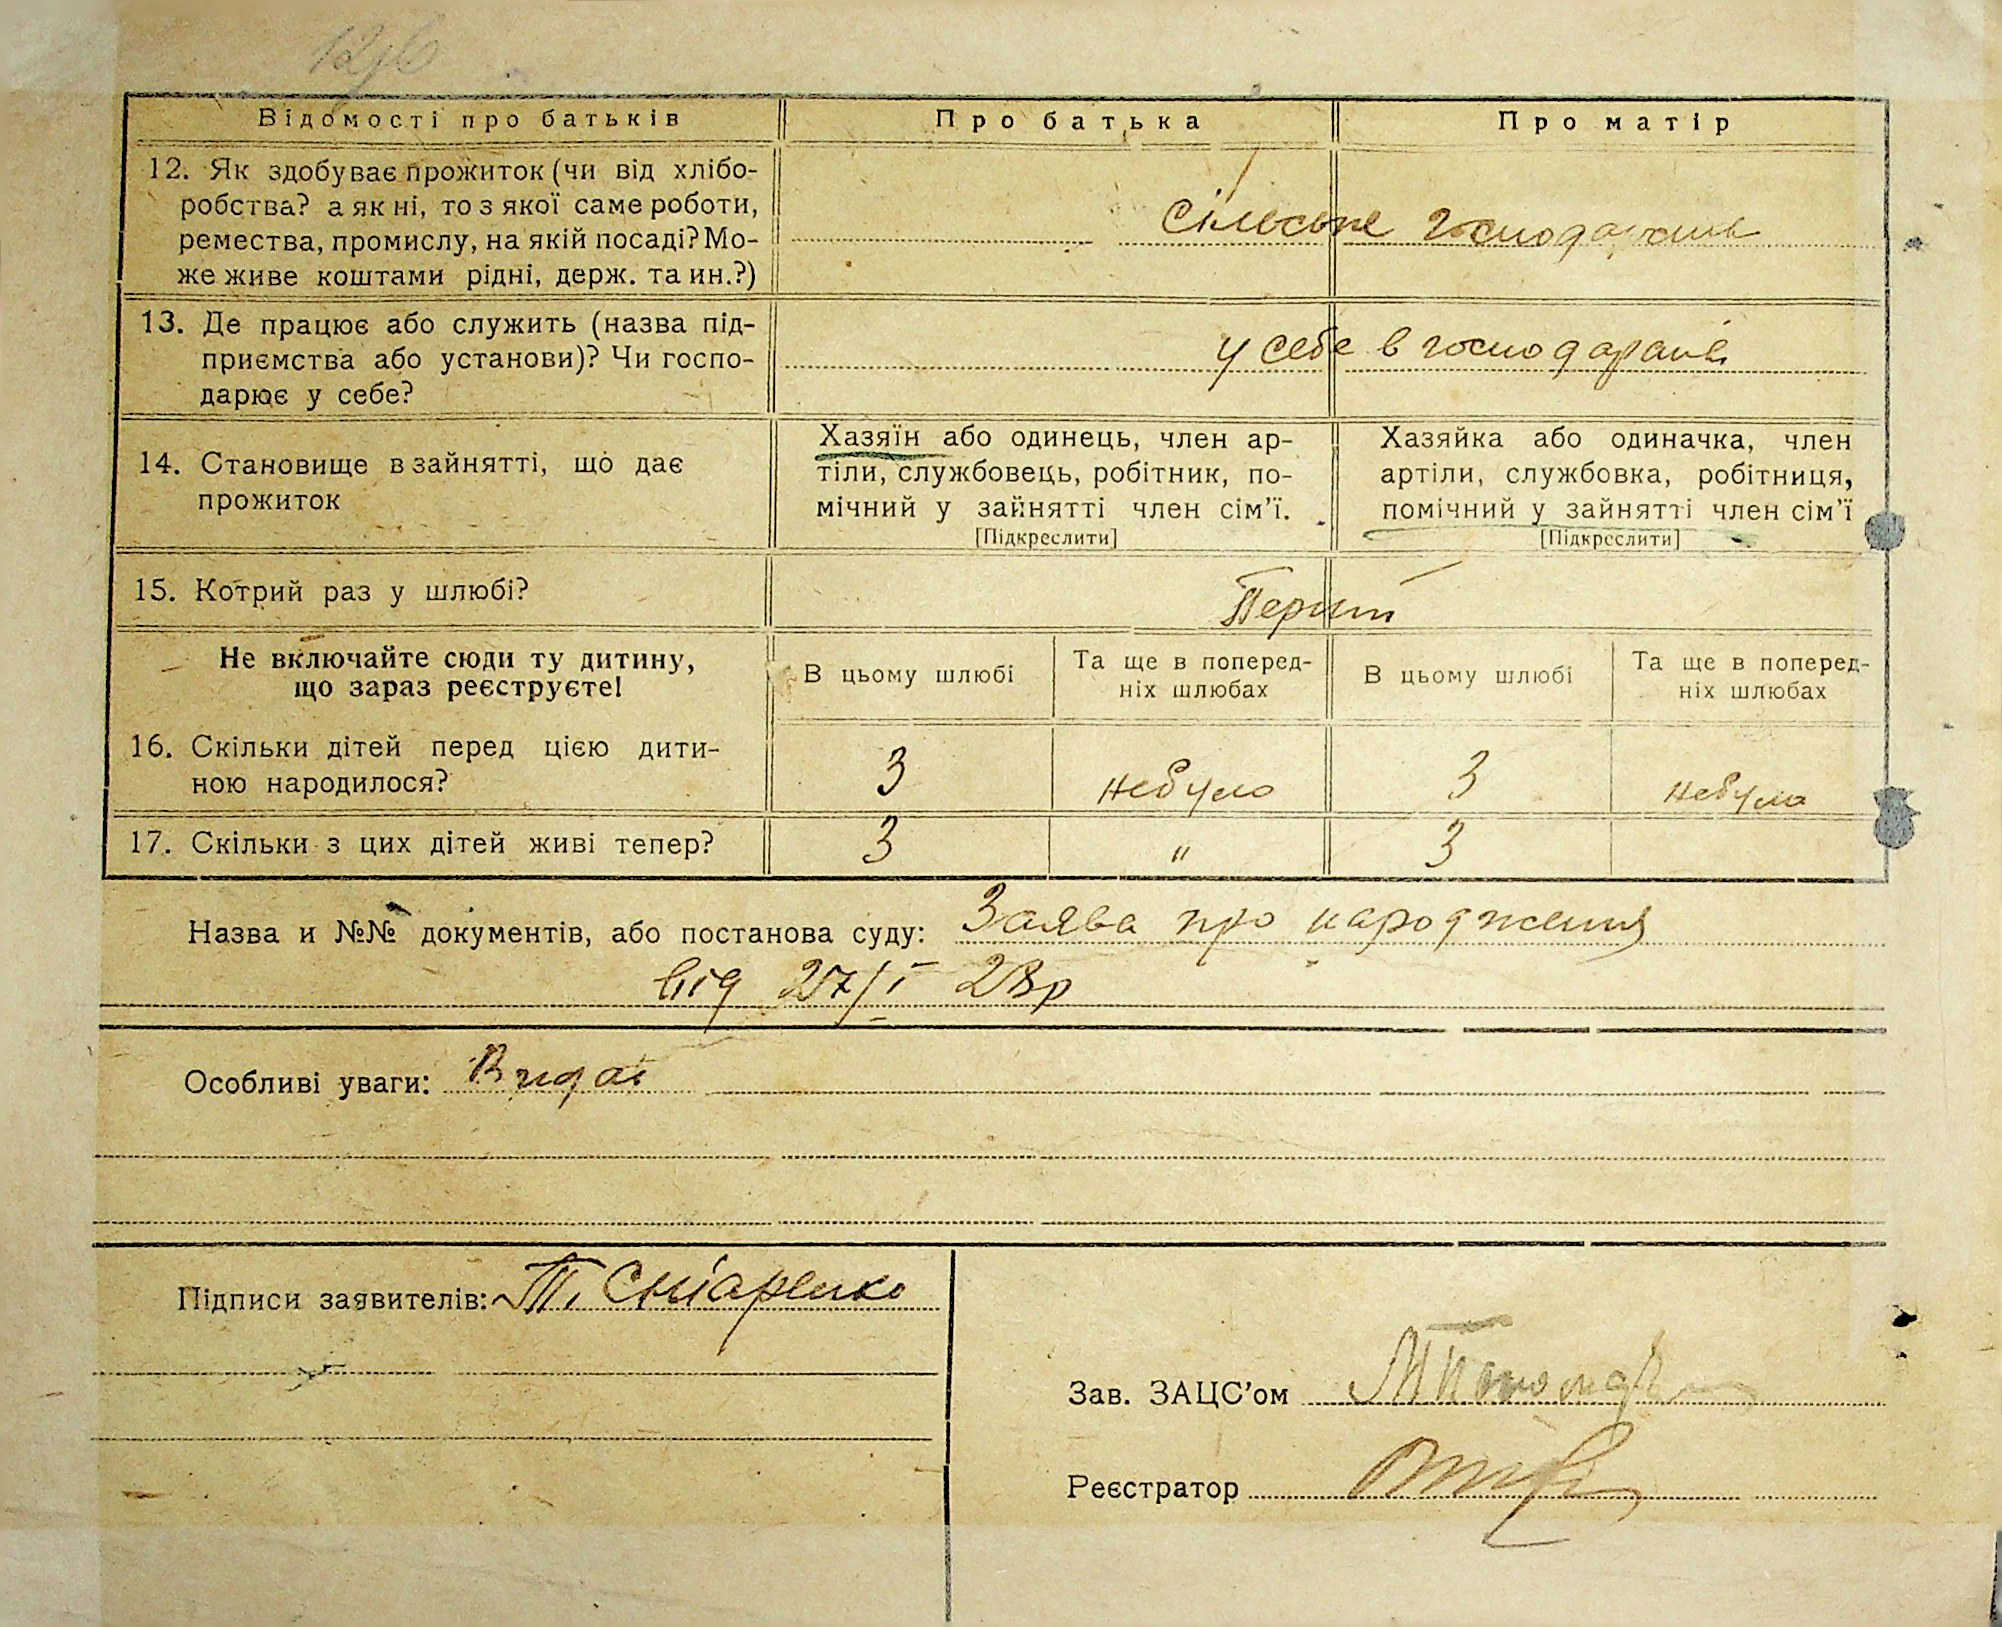 Відомості про батьків
Про батька
Про матір
12. Як здобуває прожиток (чи від хлібо-
робства? а як ні, то з якої саме роботи,
ремества, промислу, на якій посаді? Мо-
же живе коштами рідні, держ. та ин.?)
Сільське господарство
13. Де працює або служить (назва під-
приємства або установи)? Чи госпо-
дарює у себе?
у себе в господарстві
14. Становище в зайнятті, що дає
прожиток
Хазяїн або одинець, член ар-
тіли, службовець, робітник, по-
мічний у зайнятті член сім'ї.
[Підкреслити]
Хазяйка або одиначка, член
артіли, службовка, робітниця,
помічний у зайнятті член сім'ї
[Підкреслити]
15. Котрий раз у шлюбі?
Перший
Не включайте сюди ту дитину,
що зараз реєструєте!
В цьому шлюбі
Та ще в поперед-
ніх шлюбах
В цьому шлюбі
Та ще в поперед-
ніх шлюбах
16. Скільки дітей перед цією дити-
ною народилося?
3
небуло
3
небуло
17. Скільки з цих дітей живі тепер?
3
"
3
Назва и №№ документів, або постанова суду: Заява про народження
від 27/I 28р
Особливі уваги:
Підписи заявителів: Т.
Зав. ЗАЦС'ом
Реєстратор